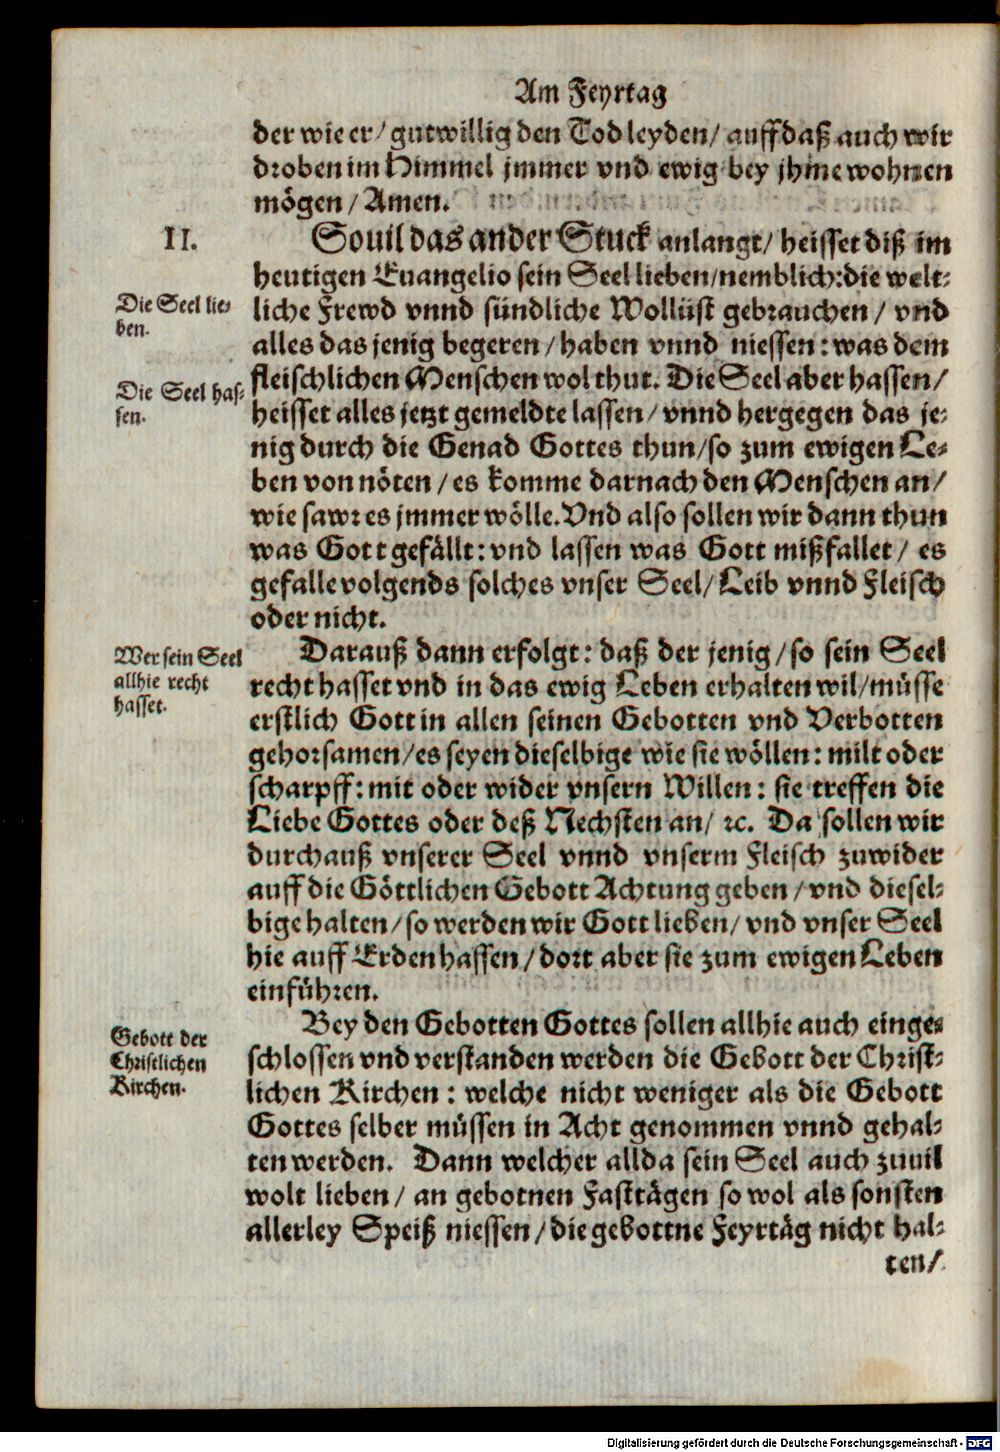 Am Feyrtag
der wie er/ gutwillig den Tod leyden/ auff daß auch wir
droben im Himmel jmmer vnd ewig bey jhme wohnen
mögen/ Amen.
II.
Souil das ander Stuck anlangt/ heisset diß im
heutigen Euangelio sein Seel lieben/ nemblich: die welt-
Die Seel lie-
ben.
liche Frewd vnnd sündliche Wollüst gebrauchen/ vnd
alles das jenig begeren/ haben vnnd niessen: was dem
Die Seel has-
sen.
fleischlichen Menschen wol thut. Die Seel aber hassen/
heisset alles jetzt gemeldte lassen/ vnnd hergegen das je-
nig durch die Genad Gottes thun/ so zum ewigen Le-
ben von nöten/ es komme darnach den Menschen an/
wie sawr es jmmer wölle. Vnd also sollen wir dann thun
was Gott gefällt: vnd lassen was Gott mißfallet/ es
gefalle volgends solches vnser Seel/ Leib vnnd Fleisch
oder nicht.
Wer sein Seel
allhie recht
hasset.
Darauß dann erfolgt: daß der jenig/ so sein Seel
recht hasset vnd in das ewig Leben erhalten wil/ müsse
erstlich Gott in allen seinen Gebotten vnd Verbotten
gehorsamen/ es seyen dieselbige wie sie wöllen: milt oder
scharpff: mit oder wider vnsern Willen: sie treffen die
Liebe Gottes oder deß Nechsten an/ ꝛc. Da sollen wir
durchauß vnserer Seel vnnd vnserm Fleisch zuwider
auff die Göttlichen Gebott Achtung geben/ vnd diesel-
bige halten/ so werden wir Gott lieben/ vnd vnser Seel
hie auff Erden hassen/ dort aber sie zum ewigen Leben
einführen.
Gebott der
Christlichen
Kirchen.
Bey den Gebotten Gottes sollen allhie auch einge-
schlossen vnd verstanden werden die Gebott der Christ-
lichen Kirchen: welche nicht weniger als die Gebott
Gottes selber müssen in Acht genommen vnnd gehal-
ten werden. Dann welcher allda sein Seel auch zuuil
wolt lieben/ an gebotnen Fasttägen so wol als sonsten
allerley Speiß niessen/ die gebottne Feyrtäg nicht hal-
ten/
Digitalisierung gefördert durch die Deutsche Forschungsgemeinschaft - DFG